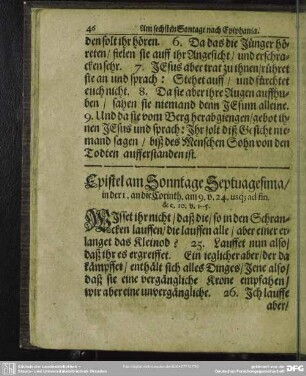 46 Am sechsten Sontage nach Epiphania.
den solt ihr hören. 6. Da das die Jünger hö-
reten/ fielen sie auff ihr Angesicht/ und erschra-
cken sehr. 7. JEsus aber trat zu ihnen/ rühret
sie an und sprach: Stehet auff/ und fürchtet
euch nicht. 8. Da sie aber ihre Augen auffhu-
ben/ sahen sie niemand denn JEsum alleine.
9. Und da sie vom Berg herabgiengen/ gebot ih-
nen JEsus und sprach: Ihr solt diß Gesicht nie-
mand sagen/ biß des Menschen Sohn von den
Todten aufferstanden ist.
Epistel am Sonntage Septuagesima/
in der 1. an die Corinth. am 9. v. 24. usq; ad fin.
& c. 10. v. 1-5.
WIsset ihr nicht/ daß die/ so in den Schran-
cken lauffen/ die lauffen alle/ aber einer er-
langet das Kleinod? 25. Lauffet nun also/
daß ihr es ergreiffet. Ein ieglicher aber/ der da
kämpffet/ enthält sich alles Dinges/ Jene also/
daß sie eine vergängliche Krone empfahen/
wir aber eine unvergängliche. 26. Ich lauffe
aber/